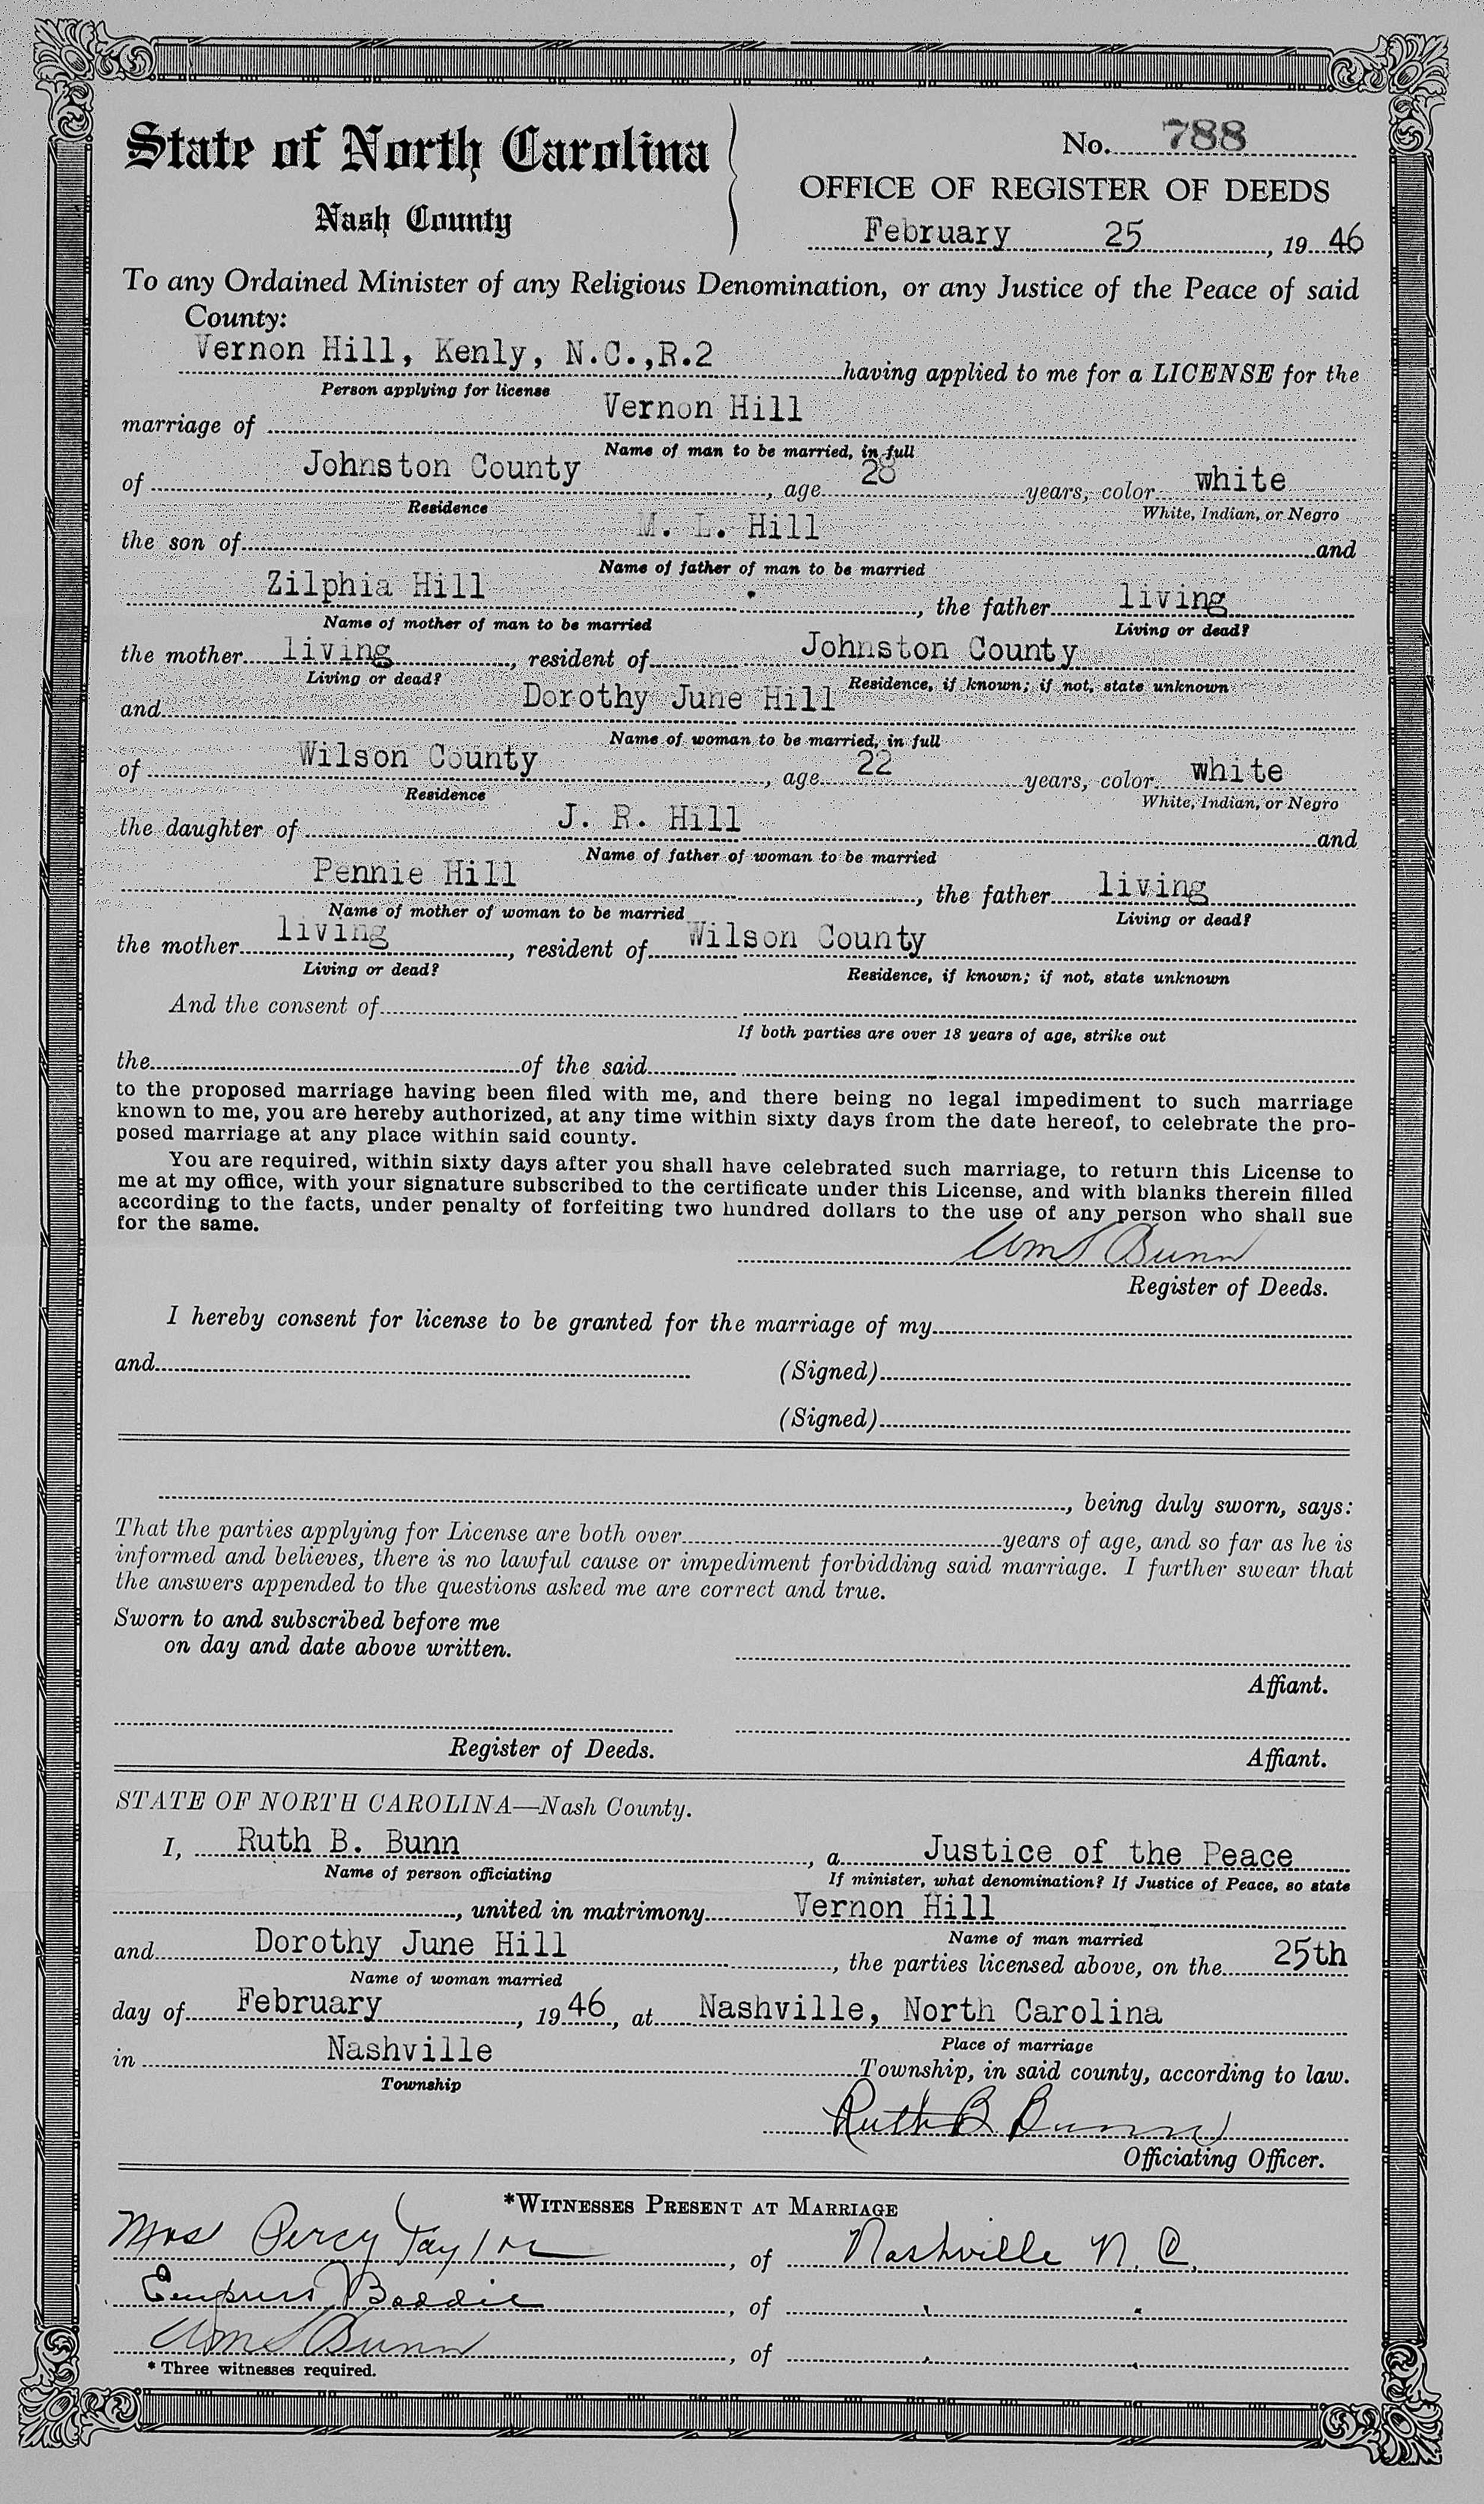 State of North Carolina
Nash County
No. 788
OFFICE OF REGISTER OF DEEDS
February 25, 19 46
To any Ordained Minister of any Religious Denomination, or any Justice of the Peace of said
County:
Vernon Hill, Kenly, N.C.,R.2 having applied to me for a LICENSE for the
Person applying for license
marriage of Vernon Hill
Name of man to be married, in full
of Johnston County, age 28 years, color white
Residence White, Indian, or Negro
the son of M. L. Hill and
Name of father of man to be married
Zilphia Hill, the father living
Name of mother of man to be married Living or dead?
the mother living, resident of Johnston County
Living or dead? Residence, if known; if not, state unknown
and Dorothy June Hill
Name of woman to be married, in full
of Wilson County, age 22 years, color white
Residence White, Indian, or Negro
the daughter of J. R. Hill and
Name of father of woman to be married
Pennie Hill, the father living
Name of mother of woman to be married Living or dead?
the mother living, resident of Wilson County
Living or dead? Residence, if known; if not, state unknown
And the consent of
If both parties are over 18 years of age, strike out
the of the said
to the proposed marriage having been filed with me, and there being no legal impediment to such marriage
known to me, you are hereby authorized, at any time within sixty days from the date hereof, to celebrate the pro-
posed marriage at any place within said county.
You are required, within sixty days after you shall have celebrated such marriage, to return this License to
me at my office, with your signature subscribed to the certificate under this License, and with blanks therein filled
according to the facts, under penalty of forfeiting two hundred dollars to the use of any person who shall sue
for the same.
Wm S Bunn
Register of Deeds.
I hereby consent for license to be granted for the marriage of my
and (Signed)
(Signed)
, being duly sworn, says:
That the parties applying for License are both over years of age, and so far as he is
informed and believes, there is no lawful cause or impediment forbidding said marriage. I further swear that
the answers appended to the questions asked me are correct and true.
Sworn to and subscribed before me
on day and date above written.
Affiant.
Register of Deeds. Affiant.
STATE OF NORTH CAROLINA—Nash County.
I, Ruth B. Bunn, a Justice of the Peace
Name of person officiating If minister, what denomination? If Justice of Peace, so state
, united in matrimony Vernon Hill
Name of man married
and Dorothy June Hill, the parties licensed above, on the 25th
Name of woman married
day of February, 19 46, at Nashville, North Carolina
Place of marriage
in Nashville Township, in said county, according to law.
Township
Ruth B Bunn
Officiating Officer.
*WITNESSES PRESENT AT MARRIAGE
Mrs Percy Taylor, of Nashville N. C.
Empress Boddie, of
Wm S Bunn, of
* Three witnesses required.